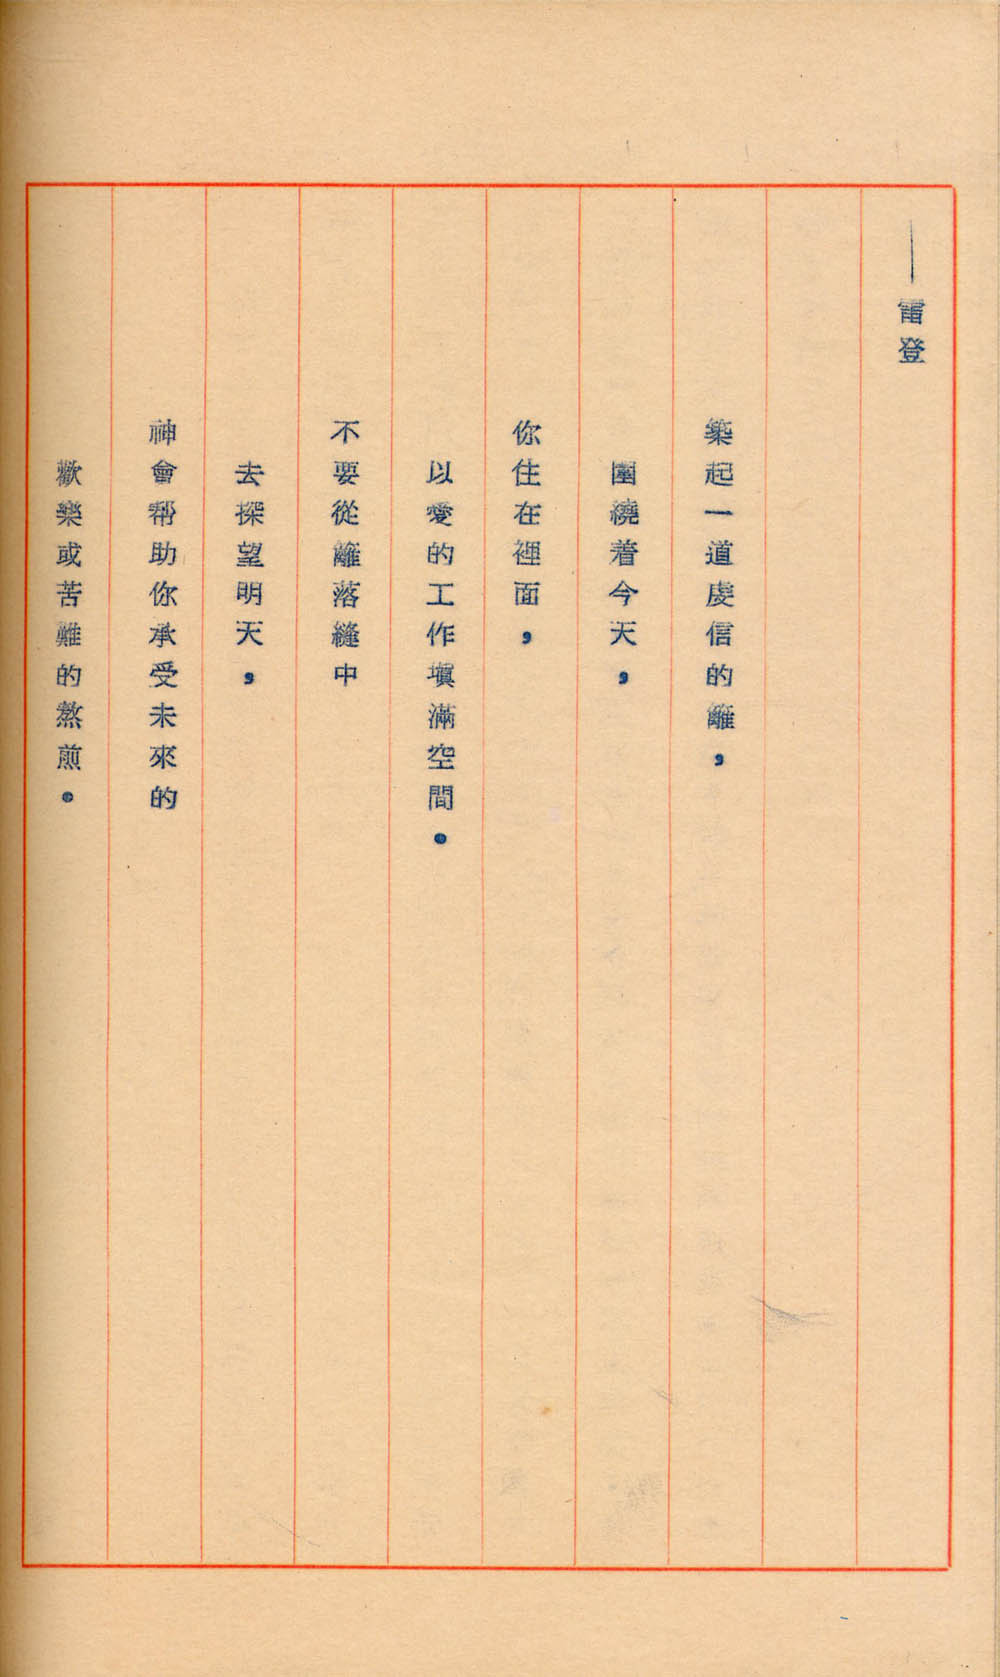 ——雷登
築起一道虔信的籬，
圍繞着今天，
你住在裡面，
以愛的工作塡滿空間。
不要從籬落縫中
去探望明天，
神會幫助你承受未來的
歡樂或苦難的熬煎。